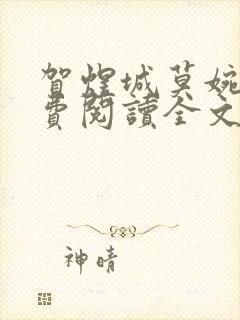 賀煜城莫婉
費閱讀全文
神晴